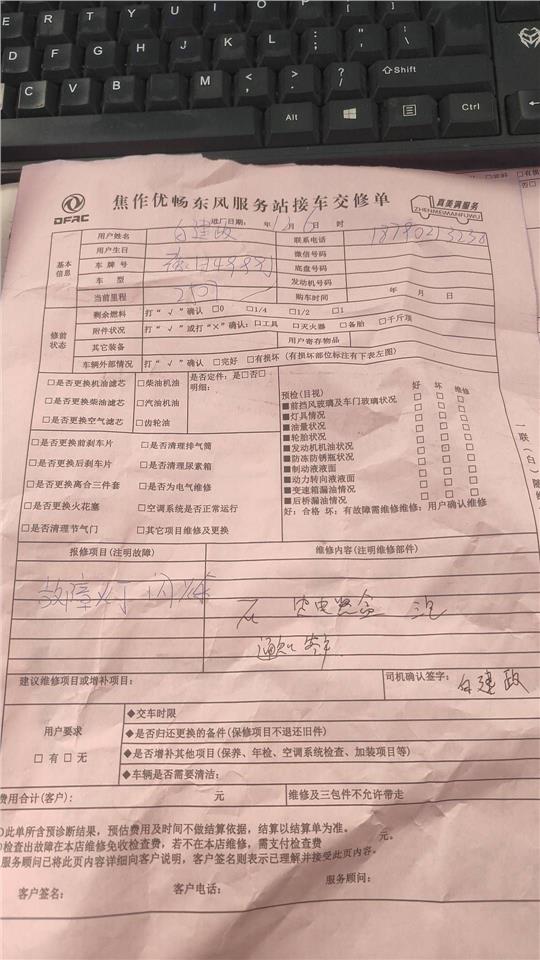 E R T Y U I O P
D F G H J K L : ; " '
C V B N M < , > . ? / Shift
Alt Ctrl
DFAC
焦作优畅东风服务站接车交修单
真美满服务
ZHENMEIMANFUWU
进厂日期: 年 月 6 日 时
基本信息
用户姓名 白建政 联系电话
用户生日 微信号码
车牌号 底盘号码
车型 发动机号码
当前里程 购车时间 年 月 日
修前状态
剩余燃料 打“√”确认 □0 □1/4 □1/2 □1
附件状况 打“√”或打“×”确认: □工具 □灭火器 □备胎 □千斤顶
其它装备 用户寄存物品
车辆外部情况 打“√”确认 □完好 □有损坏 (有损坏部位标注有下表左图)
□是否更换机油滤芯 □柴油机油 是否定件: 是□否□
明细:
□是否更换柴油滤芯 □汽油机油
□是否更换空气滤芯 □齿轮油
□是否更换前刹车片 □是否清理排气筒
□是否更换后刹车片 □是否清理尿素箱
□是否更换离合三件套 □是否为电气维修
□是否更换火花塞 □空调系统是否正常运行
□是否清理节气门 □其它项目维修及更换
预检(目视) 好 坏 维修
■前挡风玻璃及车门玻璃状况 □ □ □
■灯具情况 □ □ □
■油量状况 □ □ □
■轮胎状况 □ □ □
■发动机机油状况 □ □ □
■防冻防锈瓶状况 □ □ □
■制动液液面 □ □ □
■动力转向液液面 □ □ □
■变速箱漏油情况 □ □ □
■后桥漏油情况 □ □ □
好: 合格 坏: 有故障需维修维修: 用户确认维修
一联(白)随维
报修项目(注明故障) 维修内容(注明维修部件)
故障灯闪烁
建议维修项目或增补项目: 司机确认签字: 白建政
用户要求
□有□无
◆交车时限
◆是否归还更换的备件(保修项目不退还旧件)
◆是否增补其他项目(保养、年检、空调系统检查、加装项目等)
◆车辆是否需要清洁:
费用合计(客户): 元 维修及三包件不允许带走
此单所含预诊断结果, 预估费用及时间不做结算依据, 结算以结算单为准。
检查出故障在本店维修免收检查费, 若不在本店维修, 需支付检查费 元。
服务顾问已将此页内容详细向客户说明, 客户签名则表示已理解并接受此页内容。
客户签名: 客户电话: 服务顾问: